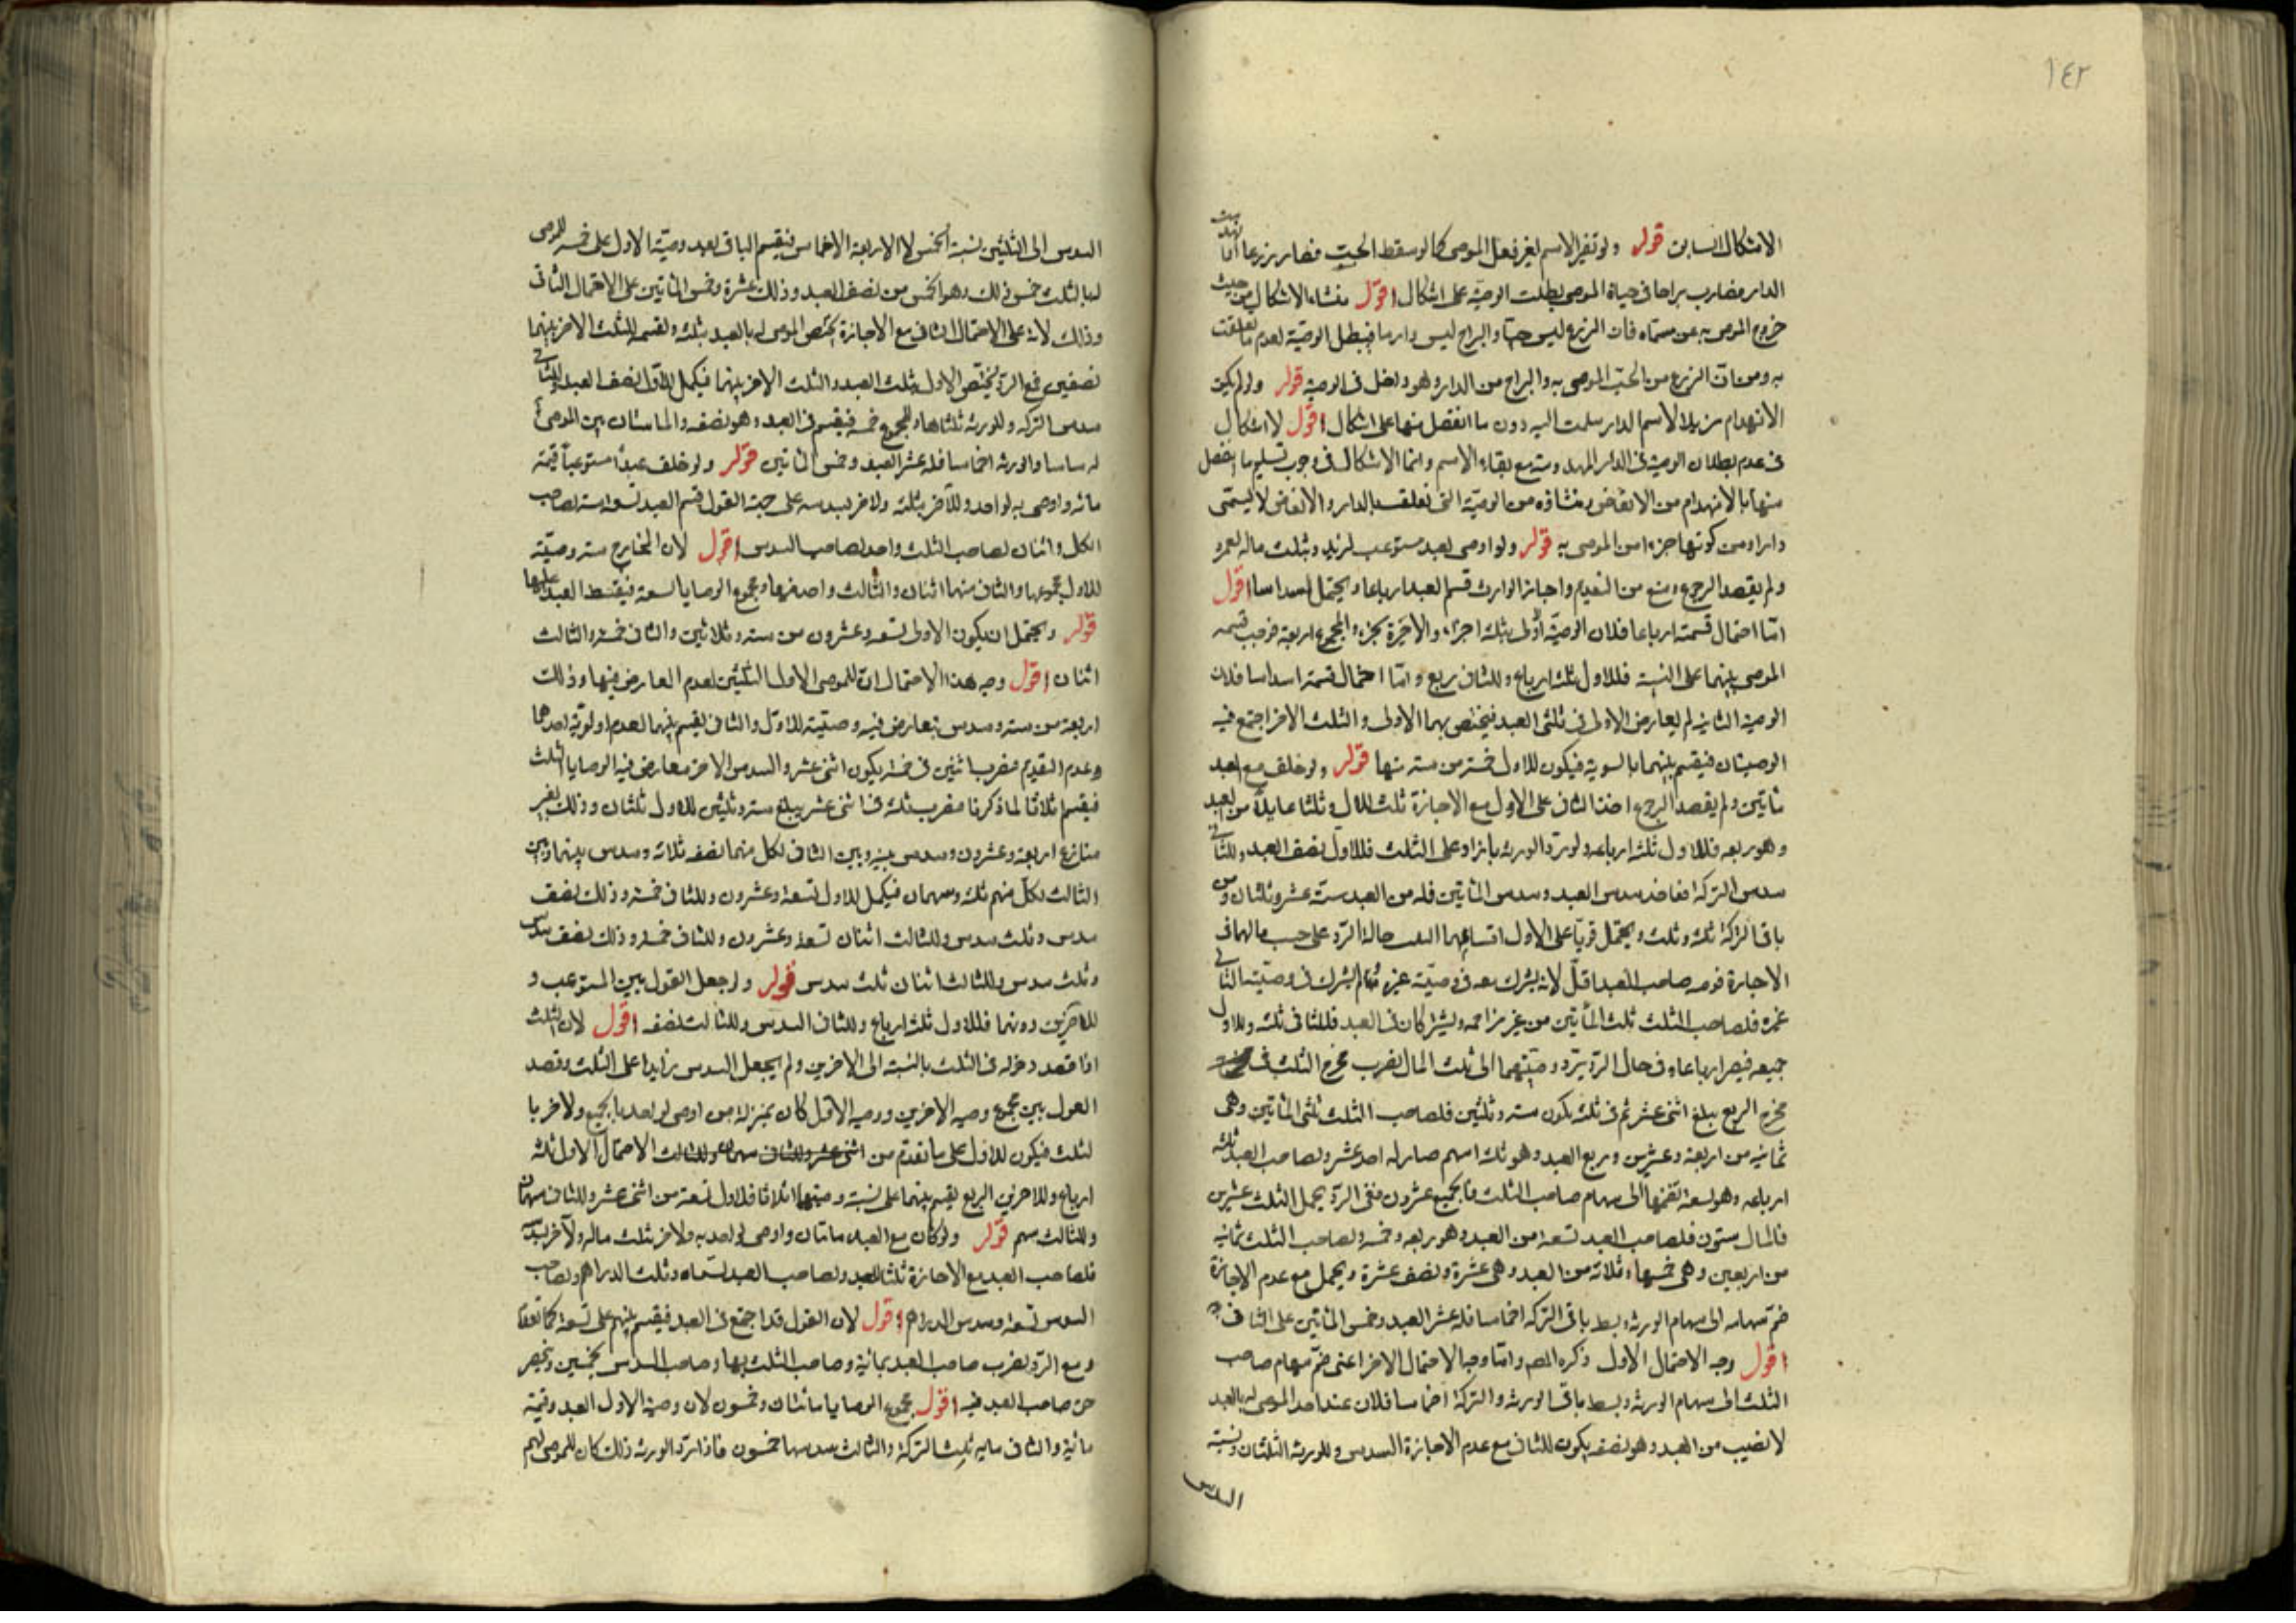 ١٤٢
الاشكال السابق قوله ولو تغير الاسم بغير فعل الموصى كما لو سقط الحب فصار زرعا او انهدمت
الدار فصارت براحا فى حياة الموصى بطلت الوصية على اشكال اقول منشاء الاشكال من حيث
خروج الموصى به عن مسماه فان الزرع ليس حبا والبراح ليس دارا فيبطل الوصية لعدم ما تعلقت
به ومن ان الزرع من الحب الموصى به والبراح من الدار وهو داخل فى الوصية قوله ولو لم يكن
الانهدام مزيلا لاسم الدار سلمت اليه دون ما انفصل منها على اشكال اقول لا اشكال
فى عدم بطلان الوصية فى الدار المهدومة مع بقاء الاسم وانما الاشكال فى وجوب تسليم ما انفصل
منها بالانهدام من الانقاض ومنشاؤه من الوصية التى تعلقت بالدار والانقاض لا يسمى
دارا ومن كونها جزءا من الموصى به قوله ولو اوصى بعبد مستوعب لزيد وبثلث ماله لعمرو
ولم يقصد الرجوع ومنع من التقديم واجاز الوارث قسم العبد ارباعا ويحتمل اسداسا اقول
اما احتمال قسمته ارباعا فلان الوصية الاولى بثلثة اجزاء والاخيرة بجزء والمجموع اربعة فوجب قسمة
الموصى بينهما على النسبة فللاول ثلثة ارباع وللثانى ربع واما احتمال قسمته اسداسا فلان
الوصية الثانية لم يعارض الاولى فى ثلثى العبد فيختص بهما الاولى والثلث الاخر اجتمع فيه
الوصيتان فيقسم بينهما بالسوية فيكون للاول خمسة من ستة منها قوله ولو خلف مع العبد
مأتين ولم يقصد الرجوع اخذ الثانى على الاول مع الاجازة ثلث المال وثلثا عايلا من العبد
وهو ربعه فللاول ثلثة ارباعه ولو رد الورثة ما زاد على الثلث فللاول نصف العبد وللثانى
سدس التركة فياخذ سدس العبد وسدس المأتين فله من العبد ستة عشر وثلثان ومن
باقى التركة ثلثة وثلث ويحتمل قويا على الاول اقتسامهما الثلث حالة الرد على حسب مالهما فى
الاجازة فوصية صاحب العبد اقل لانه يشرك معه فى وصية غيره ثم لم يشرك فى وصيته الثانى
غيره فلصاحب الثلث ثلث المأتين من غير مزاحمة ويشتركان فى العبد فللثانى ثلثه وللاول
جميعه فيصير ارباعا وفى حال الرد يرد وصيتهما الى ثلث المال يضرب مخرج الثلث فى
مخرج الربع يبلغ اثنى عشر ثم فى ثلثة يكون ستة وثلثين فلصاحب الثلث ثلثى المأتين وهى
ثمانية من اربعة وعشرين وربع العبد وهو ثلثة اسهم صار له احد عشر ولصاحب العبد ثلثة
ارباعه وهو تسعة تضمها الى سهام صاحب الثلث فالجميع عشرون ففى الرد يجعل الثلث عشرين
فالمال ستون فلصاحب العبد تسعة من العبد وهو ربعه وخمسه ولصاحب الثلث ثمانية
من اربعين وهى خمسها وثلاثة من العبد وهى عشره ونصف عشره ويحتمل مع عدم الاجازة
ضم سهامه الى سهام الورثة وبسط باقى التركة اخماسا فله عشر العبد وخمس المأتين على الثانى
اقول وجه الاحتمال الاول ذكره المصنف واما وجه الاحتمال الاخر اعنى ضم سهام صاحب
الثلث الى سهام الورثة وبسط باقى الورثة والتركة اخماسا فلان عند اخذ الموصى له بالعبد
لا نصيب من العبد وهو نصفه يكون للثانى مع عدم الاجازة السدس وللورثة الثلثان ونسبة
السدس
السدس الى الثلثين نسبة الخمس لا الاربعة الاخماس فيقسم الباقى بعد وصية الاول على خمسة للموصى
له بالثلث خمس ذلك وهو الخمس من نصف العبد وذلك عشره وخمس المأتين على الاحتمال الثانى
وذلك لانه على الاحتمال الثانى مع الاجازة يختص الموصى له بالعبد بثلثه ولقسمة الثلث الاخر بينهما
نصفين فمع الرد يختص الاول بثلث العبد والثلث الاخر بينهما فيكمل للاول نصف العبد وللثانى
سدس التركة وللورثة ثلثاها والمجموع خمسة فيقسم فى العبد وهو نصفه والمائتان بين الموصى
له ساسا والورثة اخماسا فله عشر العبد وخمس المأتين قوله ولو خلف عبدا مستوعبا قيمته
مائة واوصى به لواحد وللآخر بثلثه ولاخر بسدسه على جهة العول قسم العبد تسعة ستة لصاحب
الكل واثنان لصاحب الثلث واحد لصاحب السدس اقول لان المخارج ستة وصية
للاول بمجموعها والثانى منها اثنان والثالث واحد منها ومجموع الوصايا تسعة فيقسط العبد عليها
قوله ويحتمل ان يكون الاولى تسعة وعشرون من ستة وثلاثين والثانى خمسة والثالث
اثنان اقول وجه هذا الاحتمال ان للموصى الاول الثلثين لعدم المعارض فيها وذلك
اربعة من ستة وسدس تعارض فيه وصيته للاول والثانى يقسم بينهما لعدم اولوية احدهما
وعدم التقديم فضرب اثنين فى ستة يكون اثنى عشر والسدس الاخر معارض فيه الوصايا الثلث
فيقسم اثلاثا لما ذكرنا فضرب ثلثة فى اثنى عشر يبلغ ستة وثلثين للاول ثلثان وذلك بغير
منازع اربعة وعشرون وسدس بينه وبين الثانى لكل منهما نصفه ثلاثة وسدس بينهما وبين
الثالث لكل منهم ثلثه وسهمان فيكمل للاول تسعة وعشرون وللثانى خمسة وذلك نصف
سدس وثلث سدس وللثالث اثنان تسعة وعشرون وللثانى خمسة وذلك نصف سدس
وثلث سدس وللثالث اثنان ثلث سدس قوله ولو جعل العول بين المستوعب و
للآخرين دونهما فللاول ثلثة ارباع وللثانى السدس وللثالث نصفه اقول لان الثلث
اذا قصد دخوله فى الثلث بالنسبة الى الاخرين ولم يجعل السدس زايدا على الثلث وقصد
العول بين مجموع وصية الاخرين ووصية الاول كان بمنزلة من اوصى لواحد بالجميع ولاخر با
لثلث فيكون للاول على ما تقدم من اثنى عشر وللثانى سهمان وللثالث الاحتمال الاول ثلثة
ارباع وللاخرين الربع يقسم بينهما على نسبة وصيتهما اثلاثا فللاول تسعة من اثنى عشر وللثانى سهمان
وللثالث سهم قوله ولو كان مع العبد مائتان واوصى لواحد به ولاخر بثلث ماله ولآخر بسدسه
فلصاحب العبد مع الاجازة ثلثا العبد ولصاحب العبد تسعاه وثلث الدراهم ولصاحب
السدس تسعه وسدس الدراهم اقول لان العول قد اجتمع فى العبد فيقسم بينهم على تسعة كما تقدم
ومع الرد يضرب صاحب العبد بمائة وصاحب الثلث بها وصاحب السدس بخمسين وينحصر
حق صاحب العبد فيه اقول مجموع الوصايا مائتان وخمسون لان وصية الاول العبد وقيمته
مائة والثانى مايه ثلث التركة والثالث سدسها خمسون فاذا رد الورثة ذلك كان للموصى لهم